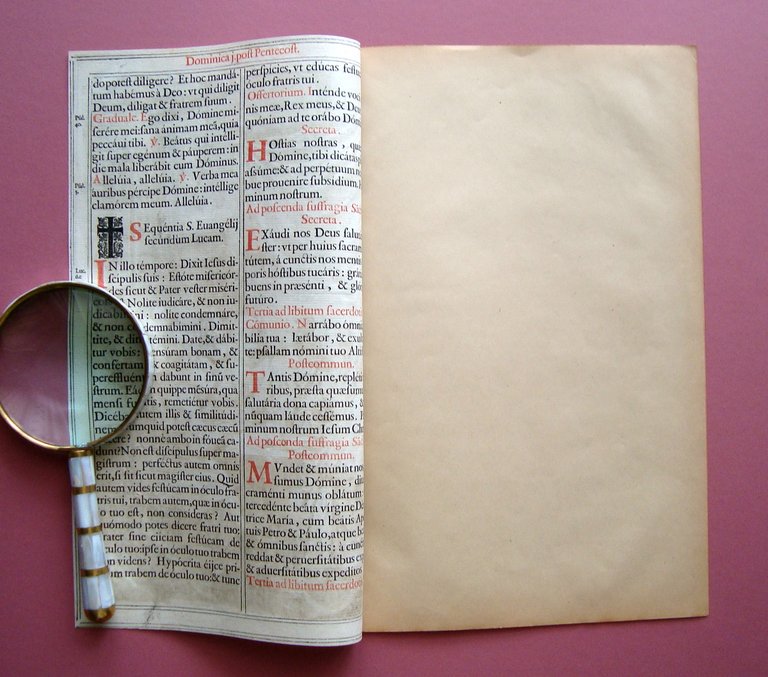 Dominica j. post Pentecost.
do potest diligere? Et hoc mandá-
tum habémus à Deo: vt qui diligit
Deum, diligat & fratrem suum.
Graduale. Ego dixi, Dómine mi-
serére mei: sana ánimam meã, quia
peccáui tibi. ℣. Beátus qui intélli-
git super egénum & páuperem: in
die mala liberábit eum Dóminus.
Allelúia, allelúia. ℣. Verba mea
auribus pércipe Dómine: intéllige
clamórem meum. Allelúia.
Psal. 40.
Psal. 5.
SEquéntia S. Euangélij
secundum Lucam.
Luc.
IN illo témpore: Dixit Iesus di-
scípulis suis: Estóte misericór-
des sicut & Pater vester miséri-
Nolíte iudicáre, & non iu-
dicabímini: nolíte condemnáre,
& non condemnabímini. Dimít-
tite, & dimittémini. Date, & dábi-
tur vobis: mensuram bonam, &
confértam & coagitátam, & su-
pereffluéntem dabunt in sinũ ve-
strum. Eádem quippe mẽsúra, qua
mensi fuéritis, remetiétur vobis.
Dicébat autem illis & similitúdi-
nem: Numquid potest cæcus cæcũ
dúcere? nonne ambo in fóueã ca-
dunt? Non est discípulus super ma-
gístrum: perféctus autem omnis
erit, si sit sicut magíster eius. Quid
autem vides festúcam in óculo fra-
tris tui, trabem autem, quæ in ócu-
lo tuo est, non consíderas? Aut
quómodo potes dícere fratri tuo:
Frater sine eíiciam festúcam de
óculo tuo: ipse in óculo tuo trabem
non videns? Hypócrita éijce pri-
mum trabem de óculo tuo: & tunc
perspícies, vt edúcas festu
óculo fratris tui.
Offertorium. Inténde voci
nis meæ, Rex meus, & De
quóniam ad te orábo Dóm
Secreta.
HOstias nostras, quæ
Dómine, tibi dicátas p
assúme: & ad perpétuum no
bue prouenire subsídium. P
minum nostrum.
Ad poscenda suffragia Sã
Secreta.
EXáudi nos Deus salut
ster: vt per huius sacram
tútem, à cunctis nos menti
poris hóstibus tueáris: grati
buens in præsenti, & glór
futúro.
Tertia ad libitum sacerdotis
Cõmunio. Narrábo ómni
bília tua: lætábor, & exul
te: psallam nómini tuo Alti
Postcommun.
TAntis Dómine, repléti
ribus, præsta quæsumu
salutária dona capiámus, &
núquam láude cessémus. P
minum nostrum Iesum Chr
Ad poscenda suffragia Sãc
Postcommun.
MVndet & múniat nos
sumus Dómine, diu
craménti munus oblátum:
tercedénte beáta vírgine De
trice María, cum beátis Ap
tuis Petro & Páulo, atque be
& ómnibus sanctis: à cunct
reddat & peruersitátibus exp
& aduersitátibus expeditos
Tertia ad libitum sacerdotis